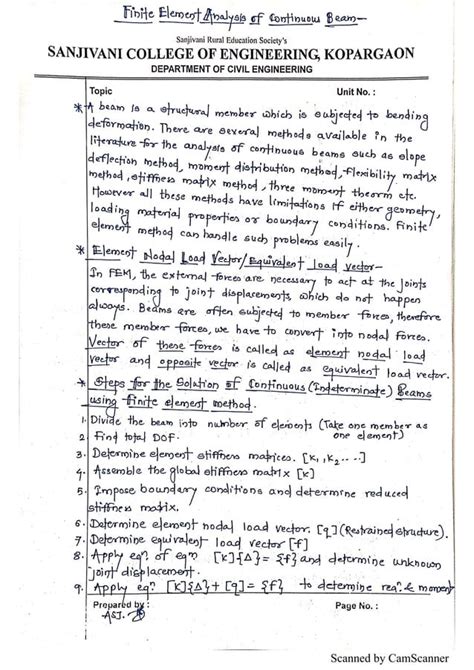 Finite Element Analysis of Continuous Beam-
Sanjivani Rural Education Society's
SANJIVANI COLLEGE OF ENGINEERING, KOPARGAON
DEPARTMENT OF CIVIL ENGINEERING
Topic Unit No. :
* A beam is a structural member which is subjected to bending
deformation. There are several methods available in the
literature for the analysis of continuous beams such as slope
deflection method, moment distribution method, flexibility matrix
method, stiffness matrix method, three moment theorm etc.
However all these methods have limitations if either geometry,
loading material properties or boundary conditions. Finite
element method can handle such problems easily.
* Element Nodal Load Vector/Equivalent load vector-
In FEM, the external forces are necessary to act at the joints
corresponding to joint displacements, which do not happen
always. Beams are often subjected to member forces, therefore
these member forces, we have to convert into nodal forces.
Vector of these forces is called as element nodal load
vector and opposite vector is called as equivalent load vector.
* Steps for the Solution of Continuous (Indeterminate) Beams
using finite element method.
1. Divide the beam into number of elements (Take one member as
one element)
2. Find total DOF.
3. Determine element stiffness matrices. [k1, k2 ....]
4. Assemble the global stiffness matrix [k]
5. Impose boundary conditions and determine reduced
stiffness matrix.
6. Determine element nodal load vector. [q] (Restrained structure).
7. Determine equivalent load vector [f]
8. Apply eqn. of eqm [k]{Δ} = {f} and determine unknown
joint displacement.
9. Apply eqn [k]{Δ} + [q] = {f} to determine rean. & moment
Prepared by : Page No. :
ASJ.
Scanned by CamScanner